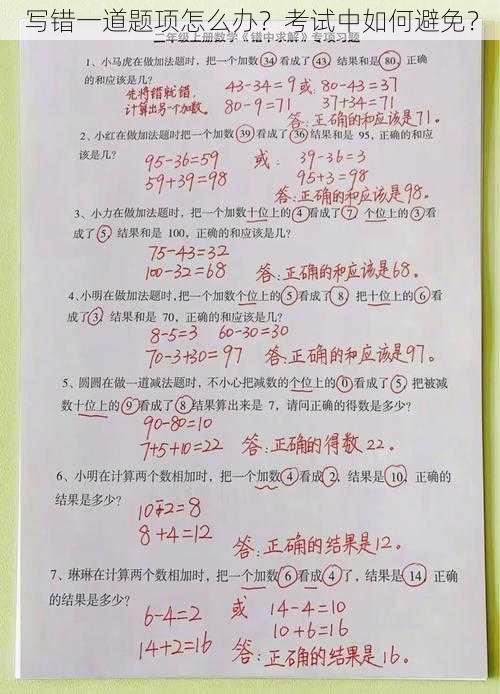 写错一道题项怎么办？考试中如何避免？
二年级上册数学《错中求解》专项习题
1、小马虎在做加法题时，把一个加数34看成了43，结果和是80。正确
的和应该是几？
先将错就错，
计算出另一个加数。
43-34=9 或：80-43=37
80-9=71 37+34=71
答：正确的和应该是71。
2、小红在做加法题时把一个加数39看成了36结果和是 95，正确的和应
该是几？
95-36=59 或： 39-36=3
59+39=98 95+3=98
答：正确的和应该是98。
3、小力在做加法题时，把一个加数十位上的4看成了7 个位上的3看
成了5，结果和是 100，正确的和应该是几？
75-43=32
100-32=68 答：正确的和应该是68。
4、小明在做加法题时，把一个加数个位上的5看成了8 把十位上的6看
成了3，结果和是 70，正确的和应该是几？
8-5=3 60-30=30
70-3+30=97 答：正确的和应该是97。
5、圆圆在做一道减法题时，不小心把减数的个位上的0看成了5，把被减
数十位上的9看成了8结果算出来是 7，请问正确的得数是多少？
90-80=10
7+5+10=22 答：正确的得数22。
6、小明在计算两个数相加时，把一个加数4看成2，结果是10，正确的
结果是多少？
10-2=8
8+4=12
答：正确的结果是12。
7、琳琳在计算两个数相加时，把一个加数6看成4了，结果是14，正确
的结果是多少？
6-4=2 或 14-4=10
14+2=16 10+6=16
答：正确的结果是16。